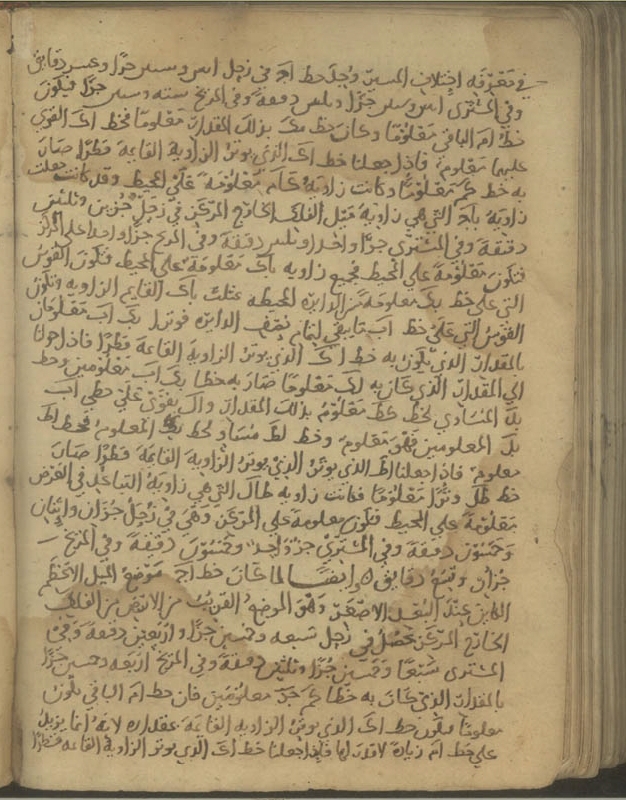 في معرفة اختلاف المسير وجد خط اج في زحل اثنين وستين جزا وعشر دقايق
وفي المشتري اثنين وستين جزا وثلثين دقيقة وفي المريخ سته وستين جزا فيكون
خط ام الباقي معلوما وكان خط مك بذلك المقدار معلوما فخط اك القوي
عليهما معلوم فاذا جعلنا خط اك الذي يوتر الزاوية القايمة قطرا صار
به خط كم معلوما وكانت زاوية كام معلومة على المحيط وقد كانت جعلت
زاوية باج التي هي زاوية ميل الفلك الخارج المركز في زحل جزين وثلثين
دقيقة وفي المشتري جزا واحدا وثلثين دقيقة وفي المريخ جزا واحدا على المركز
فتكون معلومة على المحيط فجميع زاويه باك معلومة على المحيط فتكون القوس
التي على خط بك معلومة من الدايره المحيطه بمثلث باك القايم الزاويه وتكون
القوس التي على خط اب ما يبقي لتمام نصف الدايره فوترا بك اب معلومان
بالمقدار الذي يكون به خط اك الذي يوتر الزاوية القايمة قطرا فاذا حولنا
الي المقدار الذي كان به اك معلوما صار به خطا بك اب معلومين وخط
بل المساوي لخط كط معلوم بذلك المقدار وال يقوى على خطي اب
بل المعلومين فهو معلوم وخط لط مساو لخط بك المعلوم فخط اط
معلوم فاذا جعلنا اط الذي يوتر الزاوية القايمة قطرا صار
خط طل وترا معلوما فكانت زاويه طال التي هي زاوية التباعد في العرض
معلومة على المحيط فتكون معلومة على المركز وهي في زحل جزان واثنان
وخمسون دقيقة وفي المشتري جزؤ واحد وخمسون دقيقة وفي المريخ
جزان وتسع دقايق وايضا لما كان خط اج موضع الميل الاعظم
الكاين عند البعد الاصغر وهو الموضع القريب من الارض من الفلك
الخارج المركز حصل في زحل سبعه وخمسين جزا واربعين دقيقة وفي
المشتري سبعا وخمسين جزا وثلثين دقيقة وفي المريخ اربعه وخمسين جزا
بالمقدار الذي كان به خطا كم معلومين فان خط ام الباقي يكون
معلوما فيكون خط اك الذي يوتر الزاويه القايمة بمقداره لانه انما يزيد
على خط ام زيادة لا قدر لها فاذا جعلنا خط اك الذي يوتر الزاوية القايمة قطرا